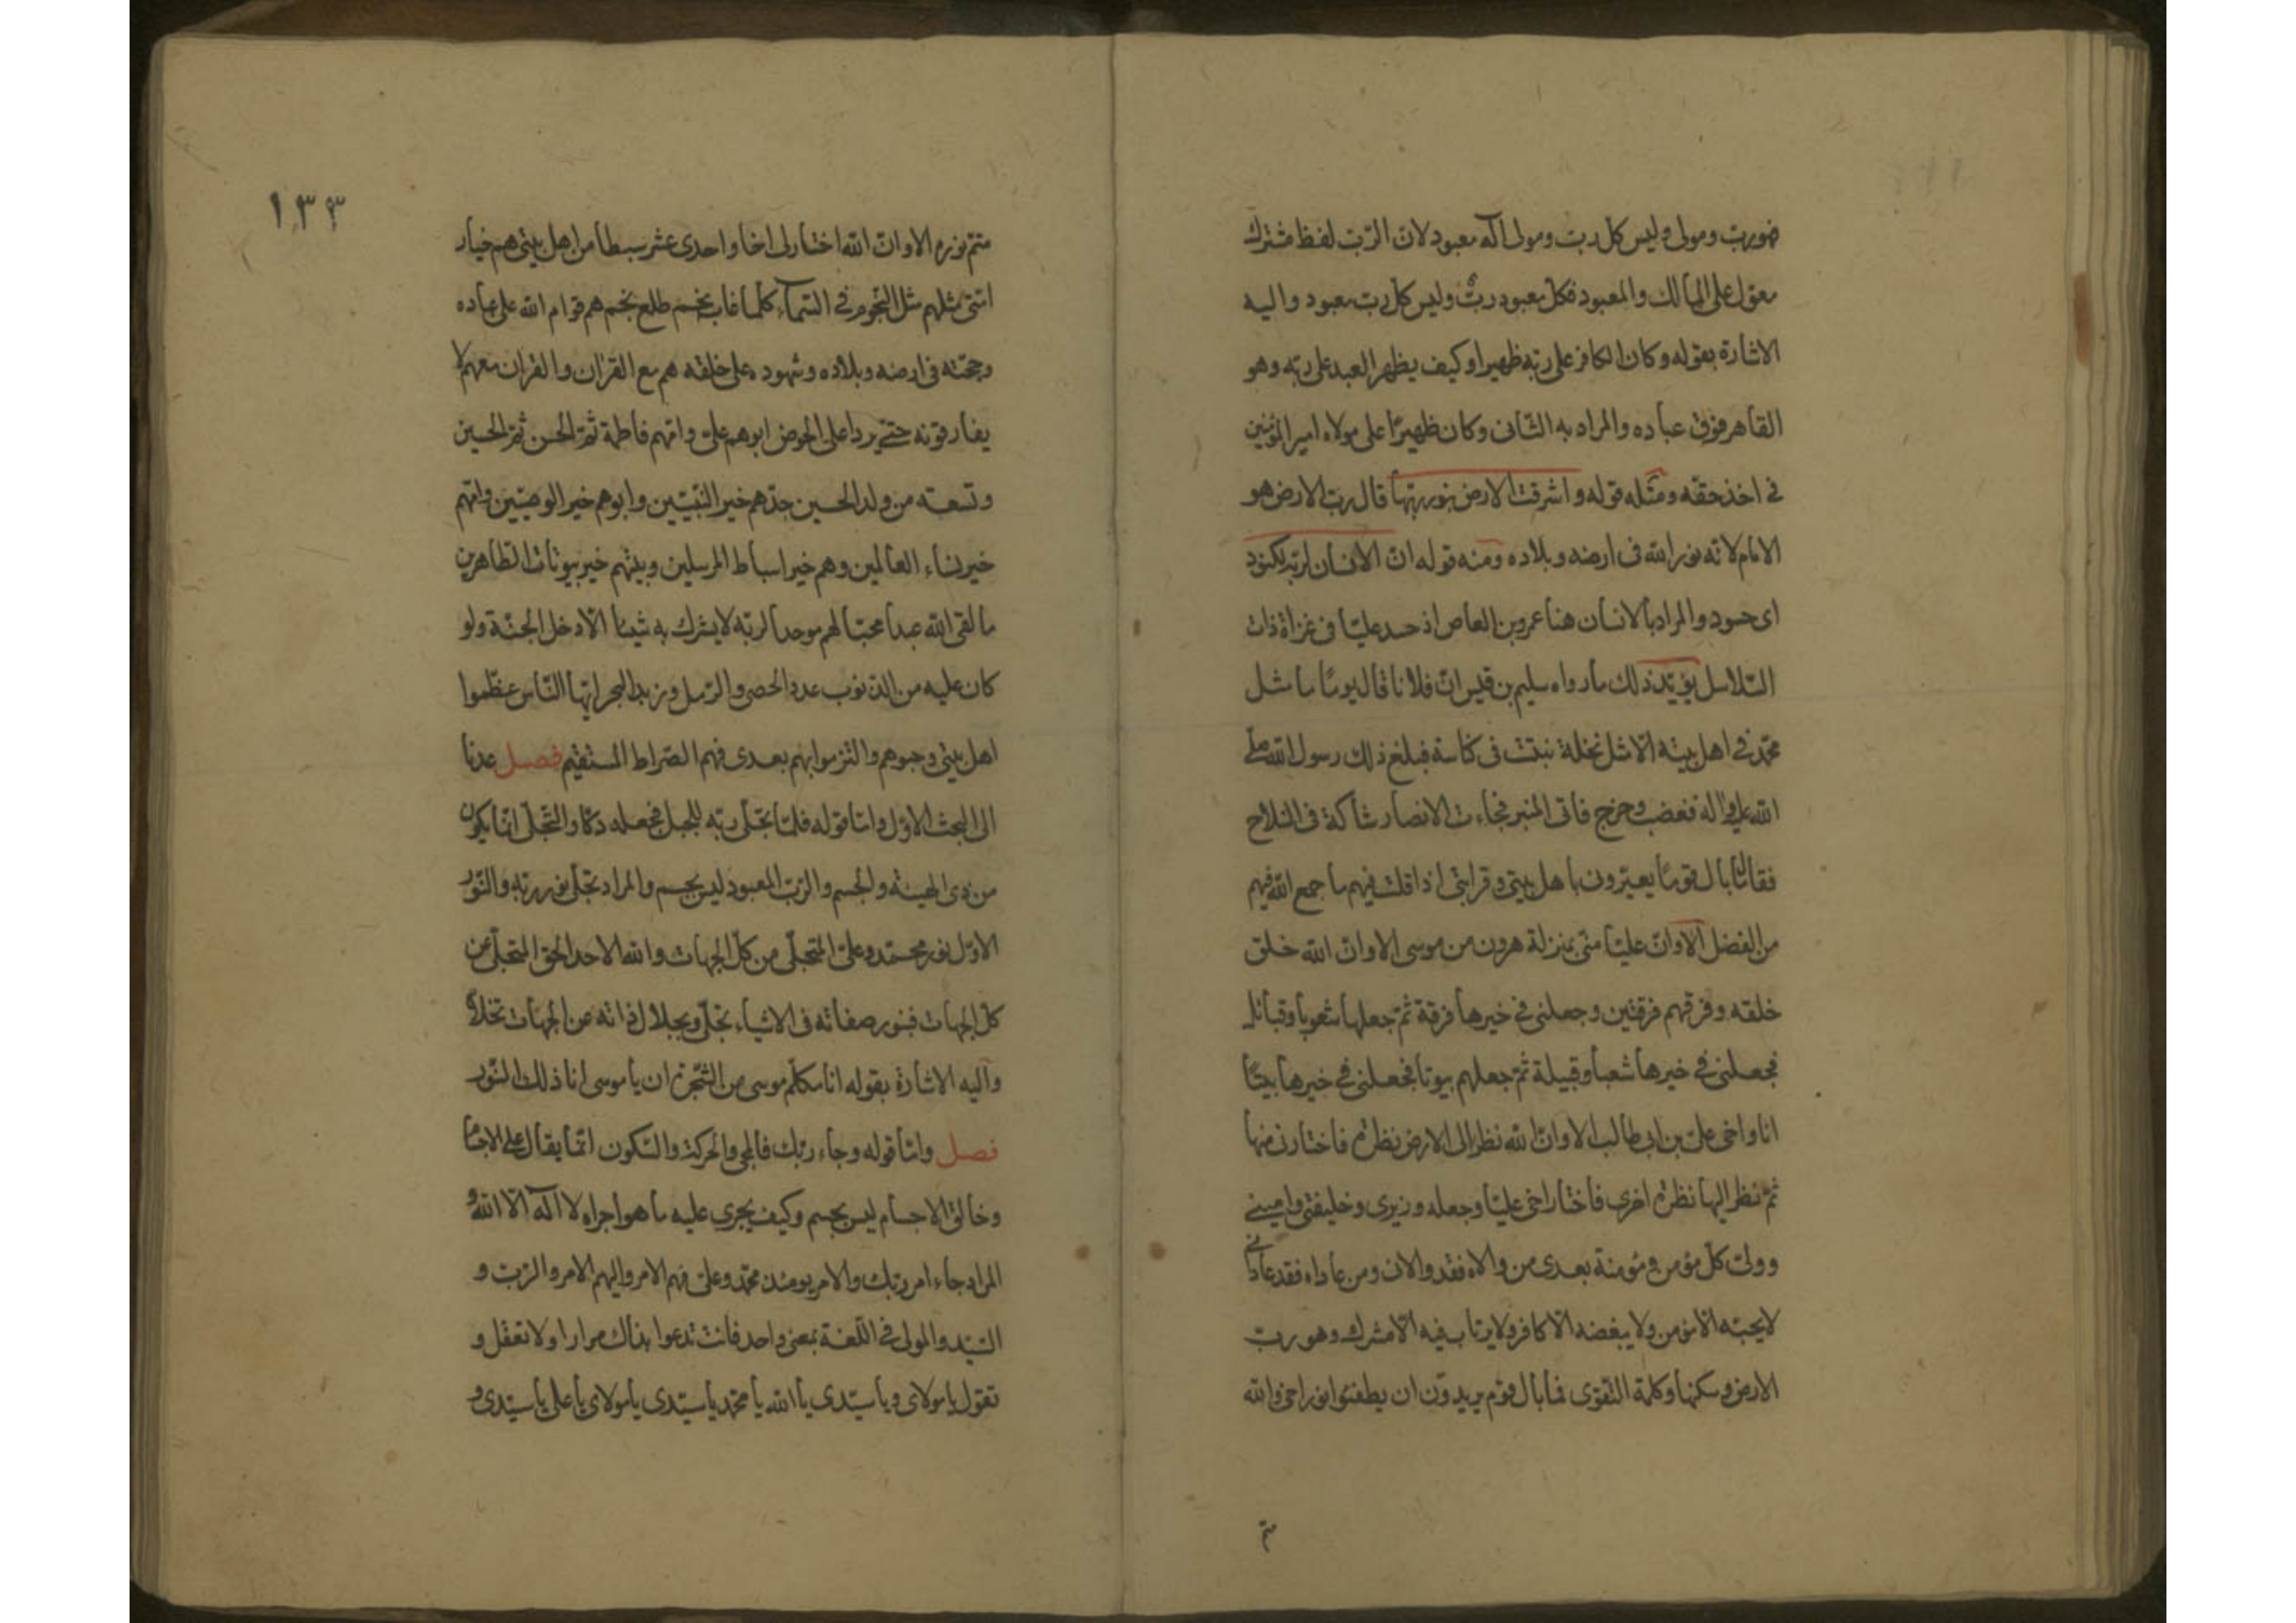 فهو رب ومولى وليس كل رب ومولى اله معبود لان الرّبّ لفظ مشترك
مقول على المالك والمعبود فكل معبود ربّ وليس كل رب معبود واليه
الاشارة بقوله وكان الكافر على ربّه ظهيرا وكيف يظهر العبد على ربّه وهو
القاهر فوق عباده والمراد به الثّانى وكان ظهيرًا على مولاه امير المؤمنين
فى اخذ حقّه ومثله قوله واشرقت الارض بنور ربّها قال رب الارض هو
الامام لانّه نور الله فى ارضه وبلاده ومنه قوله انّ الانسان لربّه لكنود
اى حسود والمراد بالانسان هنا عمرو بن العاص اذ حسد عليّا فى غزاة ذات
السّلاسل يؤيّد ذلك ما رواه سليم بن قيس انّ فلانا قال يومًا ما مثل
محمّد فى اهل بيته الّا مثل نخلة نبتت فى كناسة فبلغ ذلك رسول الله صلّى
الله عليه واله فغضب وخرج فاتى المنبر فجاءت الانصار شاكة فى السّلاح
فقال ما بال قوم يعيّرون باهل بيتى وقرابتى اذا قلت فيهم ما جمع الله فيهم
من الفضل الا وانّ عليّا منّى بمنزلة هرون من موسى الا وانّ الله خلق
خلقه وفرقهم فرقتين وجعلنى فى خيرها فرقة ثمّ جعلها شعوبا وقبائل
فجعلنى فى خيرها شعبا وقبيلة ثمّ جعلهم بيوتا فجعلنى فى خيرها بيتًا
انا واخى علىّ بن ابى طالب الا وانّ الله نظر الى الارض نظرة فاختارنى منها
ثمّ نظر اليها نظرة اخرى فاختار اخى عليّا وجعله وزيرى وخليفتى وامينى
وولىّ كلّ مؤمن ومؤمنة بعدى من والاه فقد والانى ومن عاداه فقد عادانى
لا يحبّه الا مؤمن ولا يبغضه الّا كافر ولا يرتاب فيه الّا مشرك وهو ربّ
الارض وسكنها وكلمة التّقوى فما بال قوم يريدون ان يطفئوا نور اخى والله
متم
١٣٣
متمّ نوره الا وانّ الله اختار لى اخا واحدى عشر سبطا من اهل بيتى هم خيار
امّتى مثلهم مثل النّجوم فى السّماء كلّما غاب نجم طلع نجم هم قوام الله على عباده
وحجّته فى ارضه وبلاده وشهوده على خلقه هم مع القرآن والقرآن معهم لا
يفارقونه حتّى يردا على الحوض ابوهم علىّ وامّهم فاطمة ثمّ الحسن ثمّ الحسين
وتسعة من ولد الحسين جدّهم خير النّبيّين وابوهم خير الوصيّين وامّهم
خير نساء العالمين وهم خير اسباط المرسلين وبيتهم خير بيوتات الطّاهرين
ما لقى الله عبدا محبّا لهم موحدا لربّه لا يشرك به شيئا الّا دخل الجنّة ولو
كان عليه من الذّنوب عدد الحصى والرّمل وزبد البحر ايّها النّاس عظّموا
اهل بيتى وحبوهم والتزموا بهم بعدى فهم الصّراط المستقيم فصل عدنا
الى البحث الاوّل وامّا قوله فلمّا تجلّى ربّه للجبل فجعله دكّا والتّجلّى انّما يكون
من ذى الهيئة والجسم والرّبّ المعبود ليس بجسم والمراد تجلّى نور ربّه والنّور
الاوّل نور محمّد وعلىّ المتجلّى من كلّ الجهات والله الاحد الحق المتجلّى عن
كلّ الجهات فبنور صفاته فى الاشياء تجلّى وبجلال ذاته عن الجهات تخلّا
واليه الاشارة بقوله انا مكلّم موسى من الشّجرة ان يا موسى انا ذلك النّور
فصل وامّا قوله وجاء ربّك فالمجئ والحركة والسّكون انّما يقال على الاجسام
وخالق الاجسام ليس بجسم وكيف يجرى عليه ما هو اجراه لا اله الّا الله و
المراد جاء امر ربّك والامر يومئذ محمّد وعلىّ فهم الامر واليهم الامر والرّبّ و
السّيّد والمولى فى اللّغة بمعنى واحد فانت تدعوا بذاك مرارا ولا تعقل و
تقول يا مولاى ويا سيّدى يا الله يا محمّد يا سيّدى يا مولاى يا على يا سيّدى و